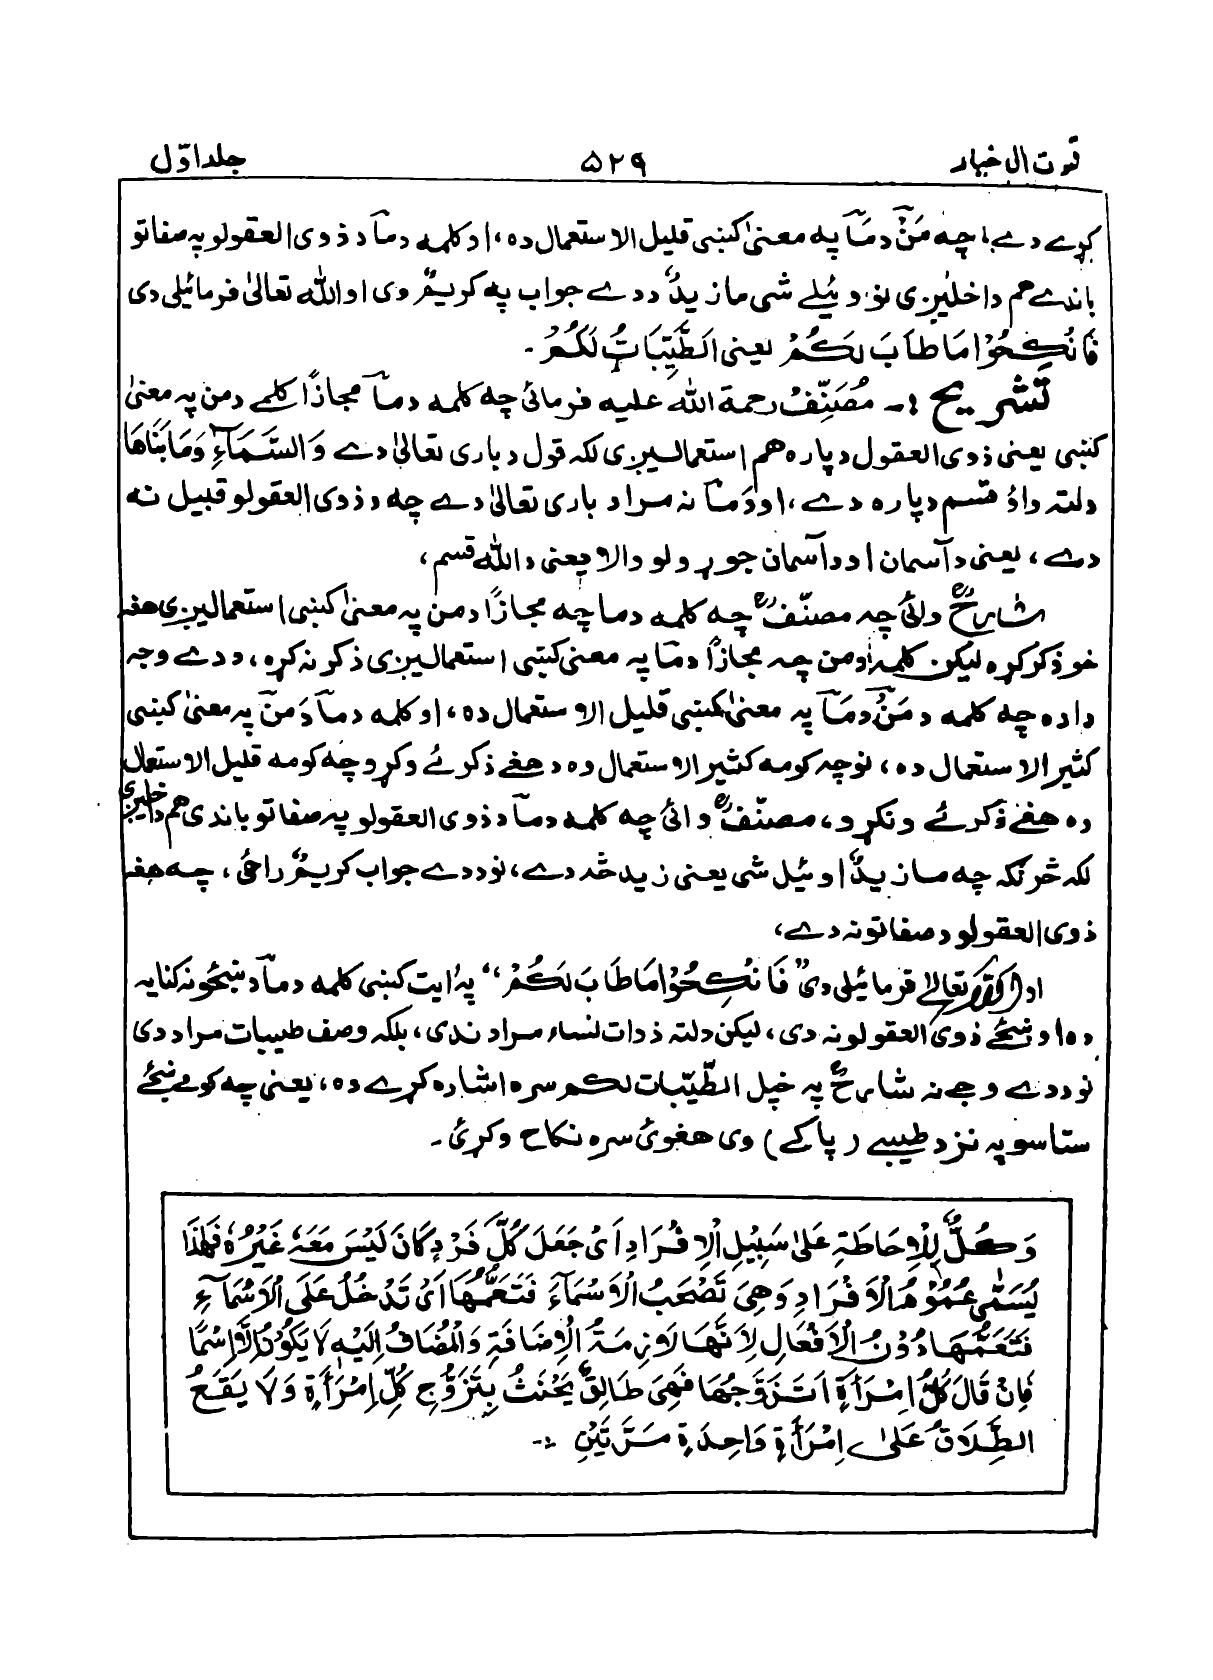 قوت الاخیار ۵۲۹ جلد اوّل
کړے دے، چه مَنْ دمَا په معنیٰ کښی قلیل الاستعمال ده، او کلمه دما د ذوی العقولو په صفاتو
باندے هم داخلیږی نو وئیلے شی ما زیدٌ ددے جواب په کریمٌ وی او الله تعالیٰ فرمائیلی دی
فَانْکِحُوْا مَا طَابَ لَکُمْ یعنی الطَّیِّبَاتُ لَکُمْ۔
تشریح :۔ مُصَنِّفْ رحمة الله علیه فرمائی چه کلمه دما مجازًا کلمے دمن په معنیٰ
کښی یعنی ذوی العقول دپاره هم استعمالیږی لکه قول د باری تعالیٰ دے وَالسَّمَآءِ وَمَا بَنَاهَا
دلته واؤ قسم دپاره دے، او دَمَا نه مراد باری تعالیٰ دے چه د ذوی العقولو قبیل نه
دے، یعنی د آسمان او د آسمان جوړولو والا یعنی د الله قسم،
شارحؒ وائی چه مصنّفؒ چه کلمه دما چه مجازًا دمن په معنیٰ کښی استعمالیږی هغه
خو ذکر کړه لیکن کلمه دمن چه مجازًا دمَا په معنیٰ کښی استعمالیږی ذکر نه کړه، ددے وجه
داده چه کلمه د مَنْ دمَا په معنیٰ کښی قلیل الاستعمال ده، او کلمه دمَا دَمَنْ په معنیٰ کښی
کثیر الاستعمال ده، نو چه کومه کثیر الاستعمال ده دهغے ذکر ئے وکړو چه کومه قلیل الاستعمال
ده هغے ذکر ئے ونکړو، مصنّفؒ وائی چه کلمه دما د ذوی العقولو په صفاتو باندی هم داخلیږی
لکه څرنګه چه ما زیدٌ او وئیل شی یعنی زید څه دے، نو ددے جواب کریمٌ راځی، چه هغه
ذوی العقولو د صفاتو نه دے،
او الله تعالےٰ فرمائیلی دی ”فَانْکِحُوْا مَا طَابَ لَکُمْ“ په ایت کښی کلمه دمَا د ښځو نه کنایه
ده او ښځے ذوی العقولو نه دی، لیکن دلته ذدات لنساء مراد ندی، بلکه وصف طیبات مراد دی
نو ددے وجے نه شارحؒ په خپل الطّیّبات لکم سره اشاره کړے ده، یعنی چه کومے ښځے
ستاسو په نزد طیبے (پاکے) وی هغوئ سره نکاح وکړئ۔
وَکُلٌّ لِلْاِحَاطَةِ عَلیٰ سَبِیْلِ الْاِفْرَادِ اَیْ جَعَلَ کُلَّ فَرْدٍ کَانَ لَیْسَ مَعَهٗ غَیْرُهٗ فَهٰذَا
یُسَمّٰی عُمُوْمُ الْاَفْرَادِ وَهِیَ تَصْحَبُ الْاَسْمَآءَ فَتَعُمُّهَا اَیْ تَدْخُلُ عَلَی الْاَسْمَآءِ
فَتَعُمُّهَا دُوْنَ الْاَفْعَالِ لِاَنَّهَا لَازِمَةُ الْاِضَافَةِ وَالْمُضَافُ اِلَیْهِ لَا یَکُوْنُ اِلَّا اِسْمًا
فَاِنْ قَالَ کُلُّ اِمْرَأَةٍ اَتَزَوَّجُهَا فَهِیَ طَالِقٌ یَحْنَثُ بِتَزَوُّجِ کُلِّ اِمْرَأَةٍ وَلَا یَقَعُ
الطَّلَاقُ عَلیٰ اِمْرَأَةٍ وَاحِدَةٍ مَرَّتَیْنِ :۔